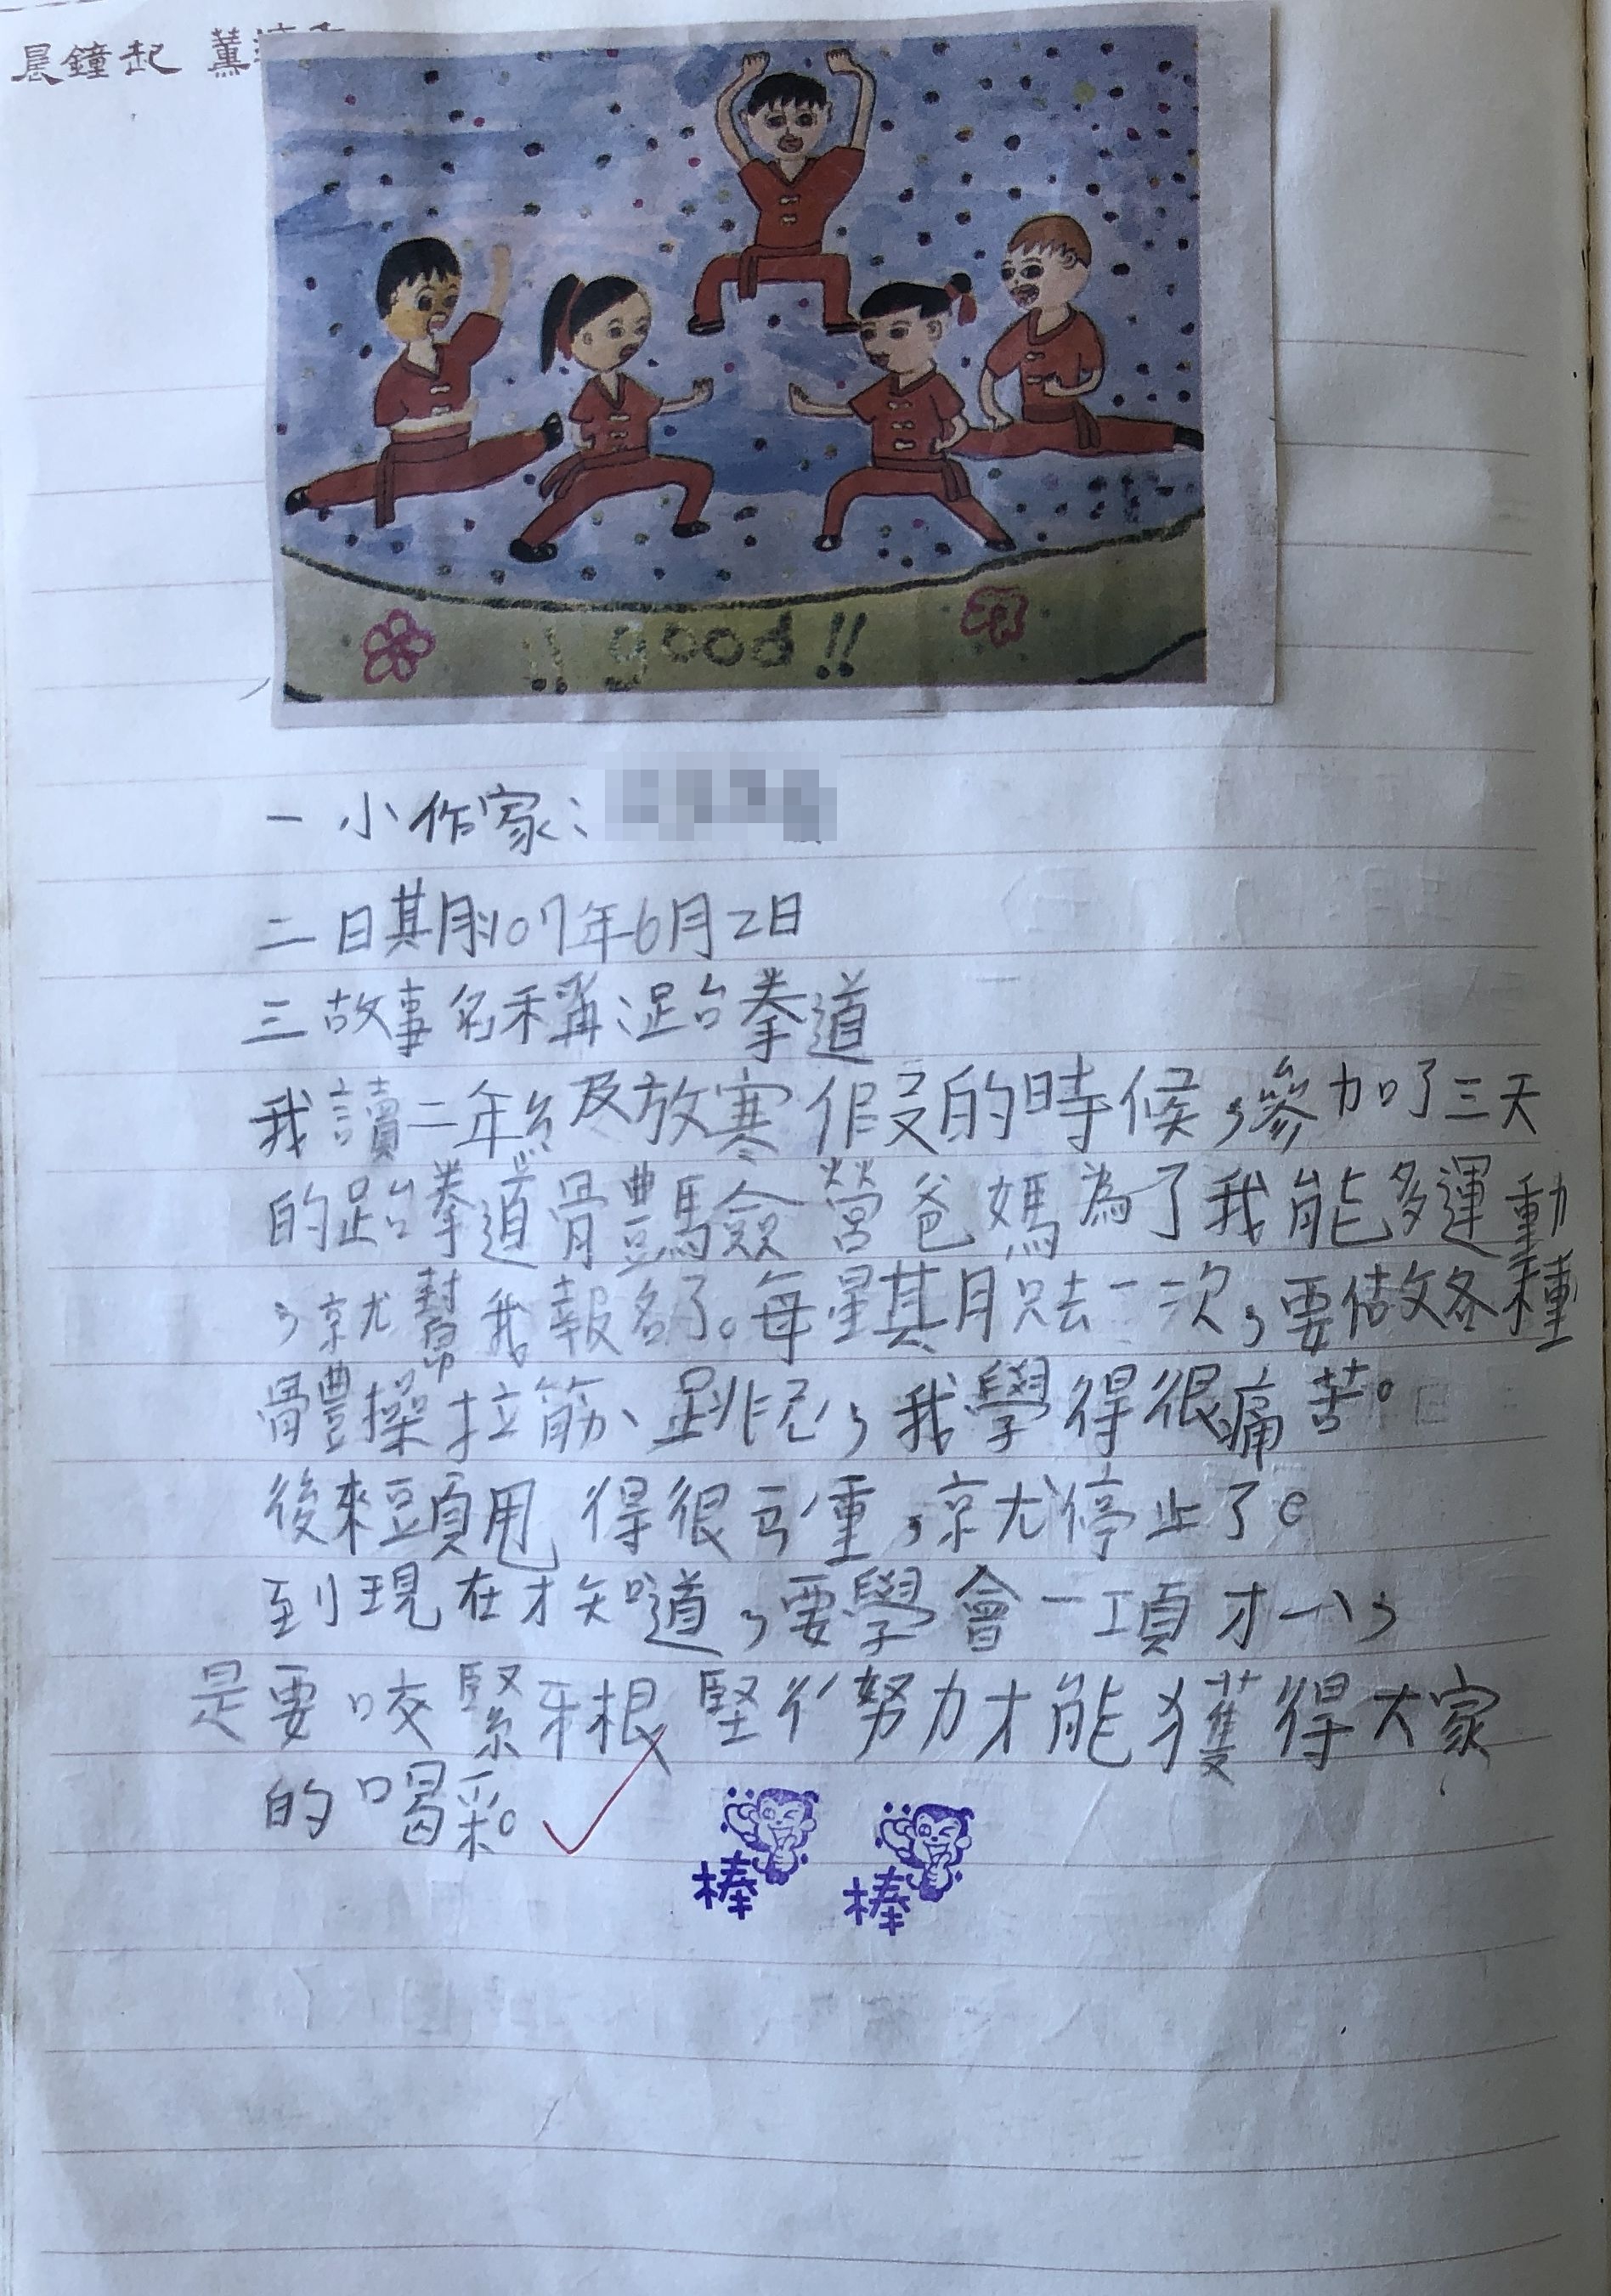 晨鐘起 薰
!! good !!
一 小作家:
二 日期:107年6月2日
三 故事名稱:跆拳道
我讀二年級放寒假的時候,參加了三天
的跆拳道體驗營爸媽為了我能多運動
,就幫我報名了。每星期只去一次,要做各種
體操拉筋、跳 ,我學得很痛苦。
後來頭甩得很 重,就停止了。
到現在才知道,要學會一項才 ,
是要咬緊牙根 堅 努力才能獲得大家
的喝采。
棒 棒